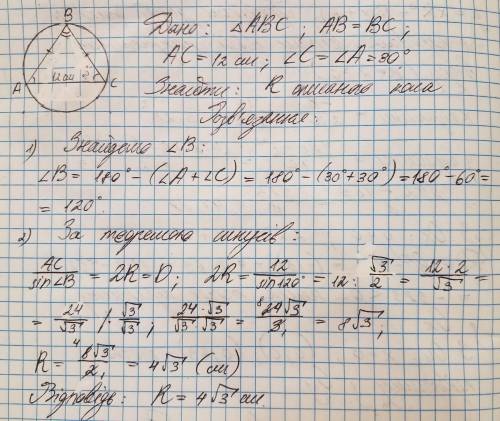 B
A 12 см 30° C
Дано: △ABC; AB = BC;
AC = 12 см; ∠C = ∠A = 30°
Знайти: R описаного кола
Розв'язання:
1) Знайдемо ∠B:
∠B = 180° - (∠A + ∠C) = 180° - (30° + 30°) = 180° - 60° =
= 120°.
2) За теоремою синусів:
AC/sin∠B = 2R = D; 2R = 12/sin120° = 12 : √3/2 = 12 · 2/√3 =
= 24/√3 /· √3/√3; 24 · √3/√3 · √3 = 8 24√3/3 1 = 8√3;
R = 4 8√3/2 1 = 4√3 (см)
Відповідь: R = 4√3 см.